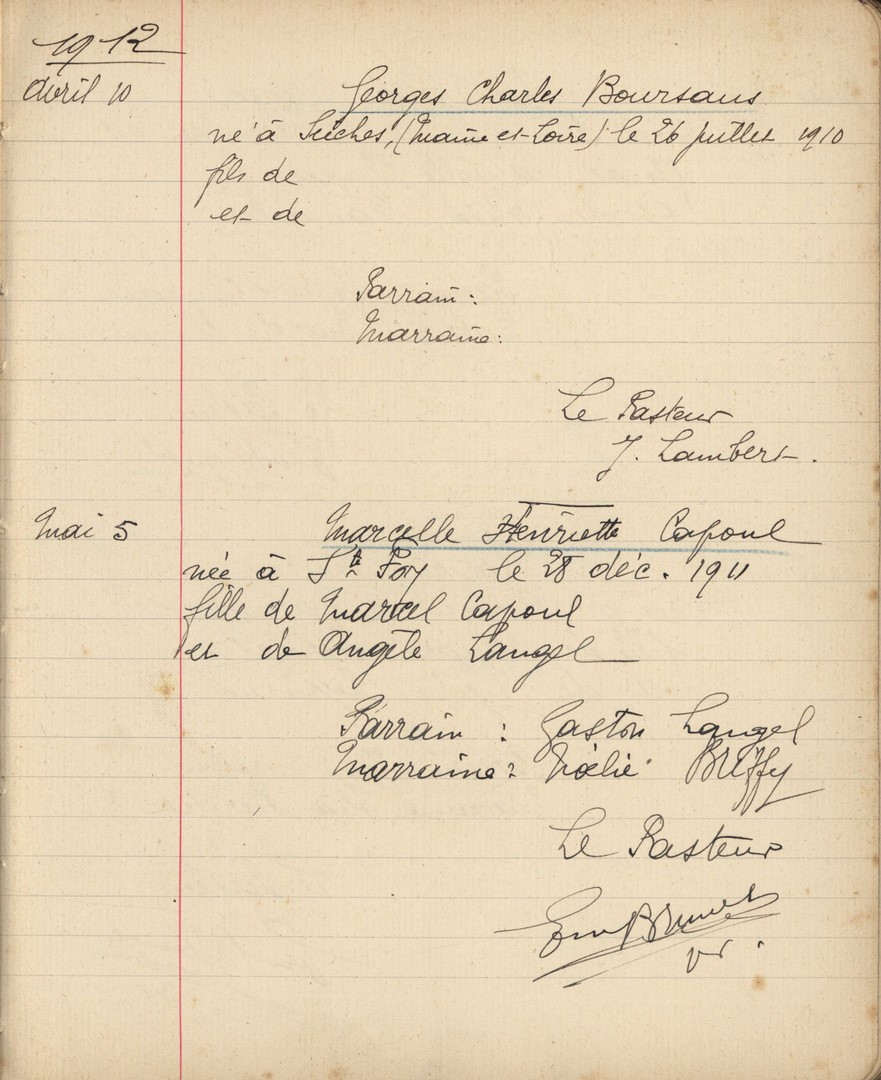 1912
Avril 10
Georges Charles Boursaus
né à Seiches, (Maine et-Loire) le 26 juillet 1910
fils de
et de
Parrain :
Marraine :
Le Pasteur
J. Lambert.
Mai 5
Marcelle Henriette Capoul
née à Ste Foy le 28 déc. 1911
fille de Marcel Capoul
et de Angèle Langel
Parrain : Gaston Langel
Marraine : Noélie Briffy
Le Pasteur